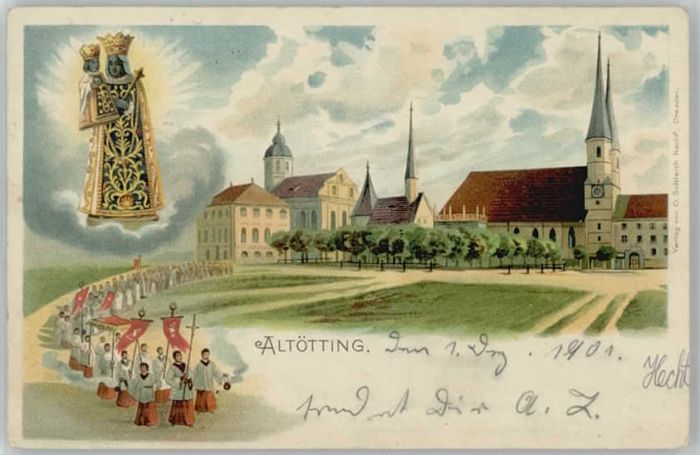 ALTÖTTING. den 1. Dez. 1901.
Hecht
sendet Dir A. Z.
Verlag von O. Schleich Nachf., Dresden.